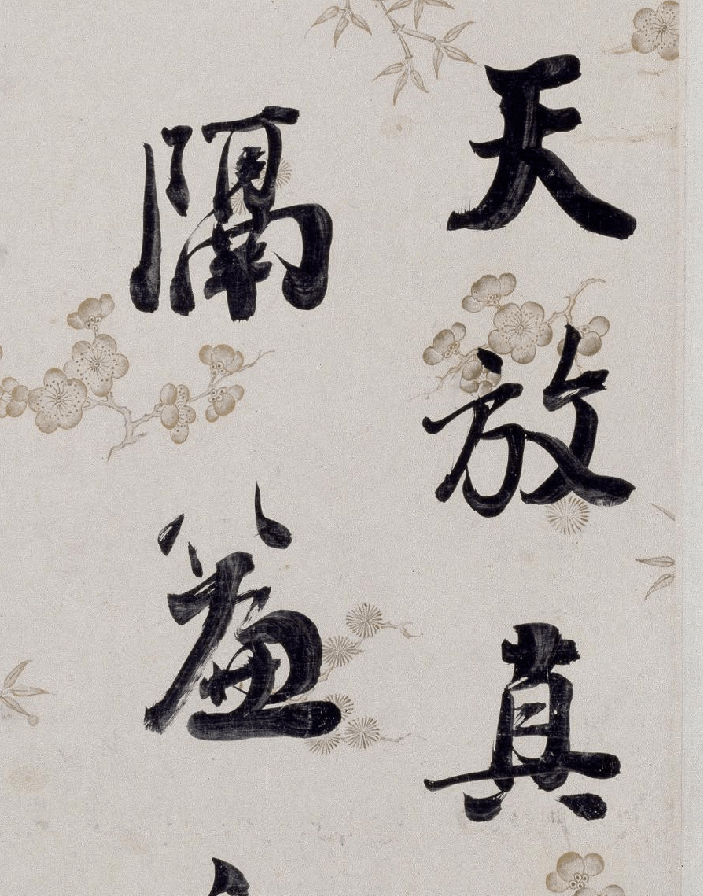 天放真
隔簾